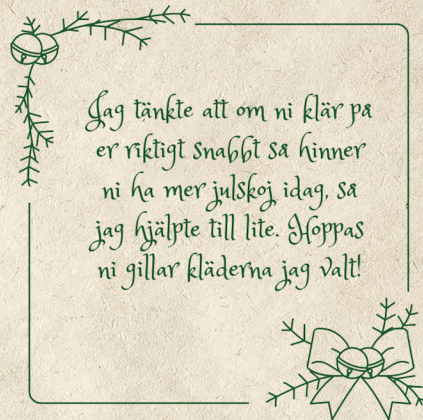 Jag tänkte att om ni klär på
er riktigt snabbt så hinner
ni ha mer julskoj idag, så
jag hjälpte till lite. Hoppas
ni gillar kläderna jag valt!